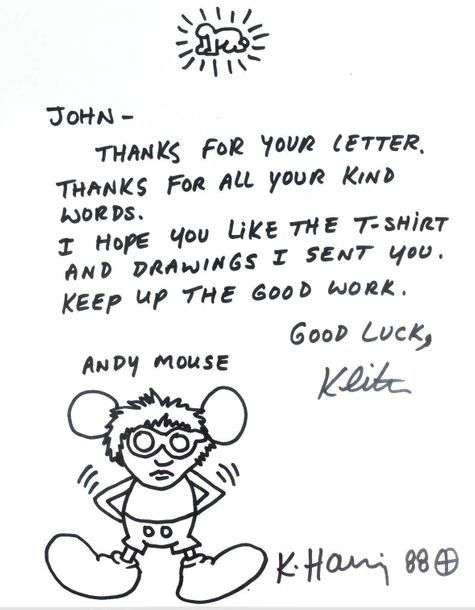 JOHN -
THANKS FOR YOUR LETTER.
THANKS FOR ALL YOUR KIND
WORDS.
I HOPE YOU LIKE THE T-SHIRT
AND DRAWINGS I SENT YOU.
KEEP UP THE GOOD WORK.
GOOD LUCK,
ANDY MOUSE
K. Haring 88